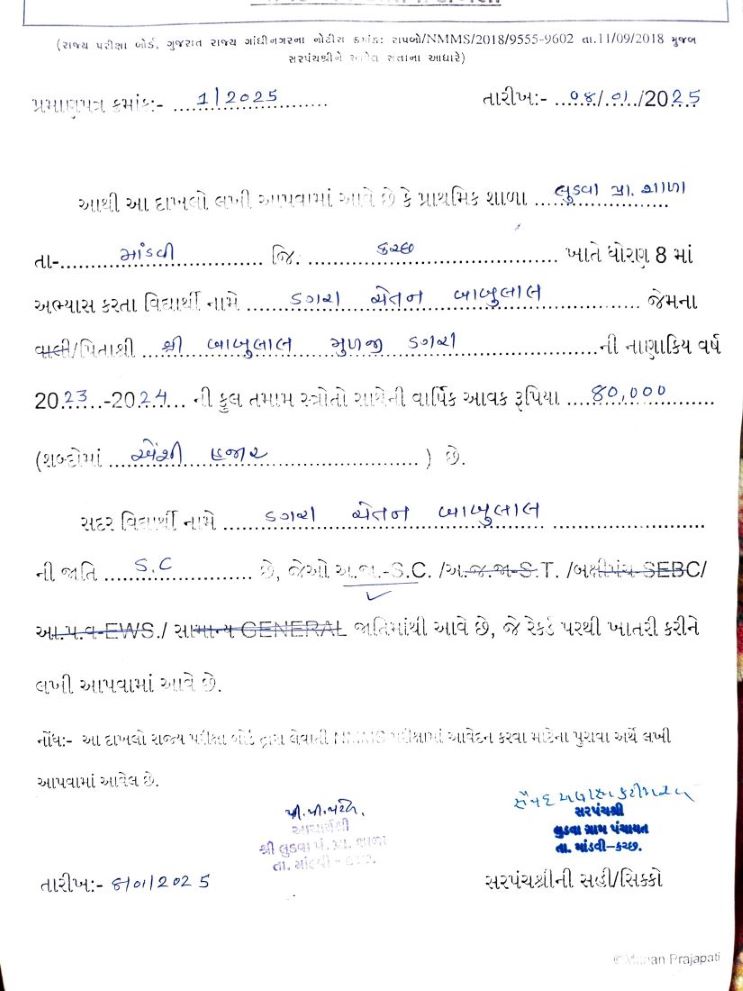 (રાજ્ય પરીક્ષા બોર્ડ, ગુજરાત રાજ્ય ગાંધીનગરના નોટીસ ક્રમાંક: રાપબો/NMMS/2018/9555-9602 તા.11/09/2018 મુજબ
સરપંચશ્રીને આપેલ સત્તાના આધારે)
પ્રમાણપત્ર ક્રમાંક:- ...1/2025...
તારીખ:- ...08/01/2025
આથી આ દાખલો લખી આપવામાં આવે છે કે પ્રાથમિક શાળા ...લુડવા પ્રા. શાળા
તા-...માંડવી... જિ. ...કચ્છ... ખાતે ધોરણ 8 માં
અભ્યાસ કરતા વિદ્યાર્થી નામે ...ડગરા ચેતન બાબુલાલ... જેમના
વાલી/પિતાશ્રી ...શ્રી બાબુલાલ મુળજી ડગરા...ની નાણાકિય વર્ષ
2023-2024... ની કુલ તમામ સ્ત્રોતો સાથેની વાર્ષિક આવક રૂપિયા ...80,000...
(શબ્દોમાં ...એંશી હજાર...) છે.
સદર વિદ્યાર્થી નામે ...ડગરા ચેતન બાબુલાલ...
ની જાતિ ...S.C... છે, જેઓ અ.જા.-S.C. /અ.જ.જા-S.T. /બક્ષીપંચ-SEBC/
આ.પ.વ-EWS./ સામાન્ય GENERAL જાતિમાંથી આવે છે, જે રેકર્ડ પરથી ખાતરી કરીને
લખી આપવામાં આવે છે.
નોંધ:- આ દાખલો રાજ્ય પરીક્ષા બોર્ડ દ્વારા લેવાતી NMMS પરીક્ષામાં આવેદન કરવા માટેના પુરાવા અર્થે લખી
આપવામાં આવેલ છે.
પી.પી.પટેલ
આચાર્યશ્રી
શ્રી લુડવા પં. પ્રા. શાળા
તા. માંડવી - કચ્છ.
સરપંચશ્રી
લુડવા ગ્રામ પંચાયત
તા. માંડવી-કચ્છ.
તારીખ:- 8/01/2025
સરપંચશ્રીની સહી/સિક્કો
© Manan Prajapati